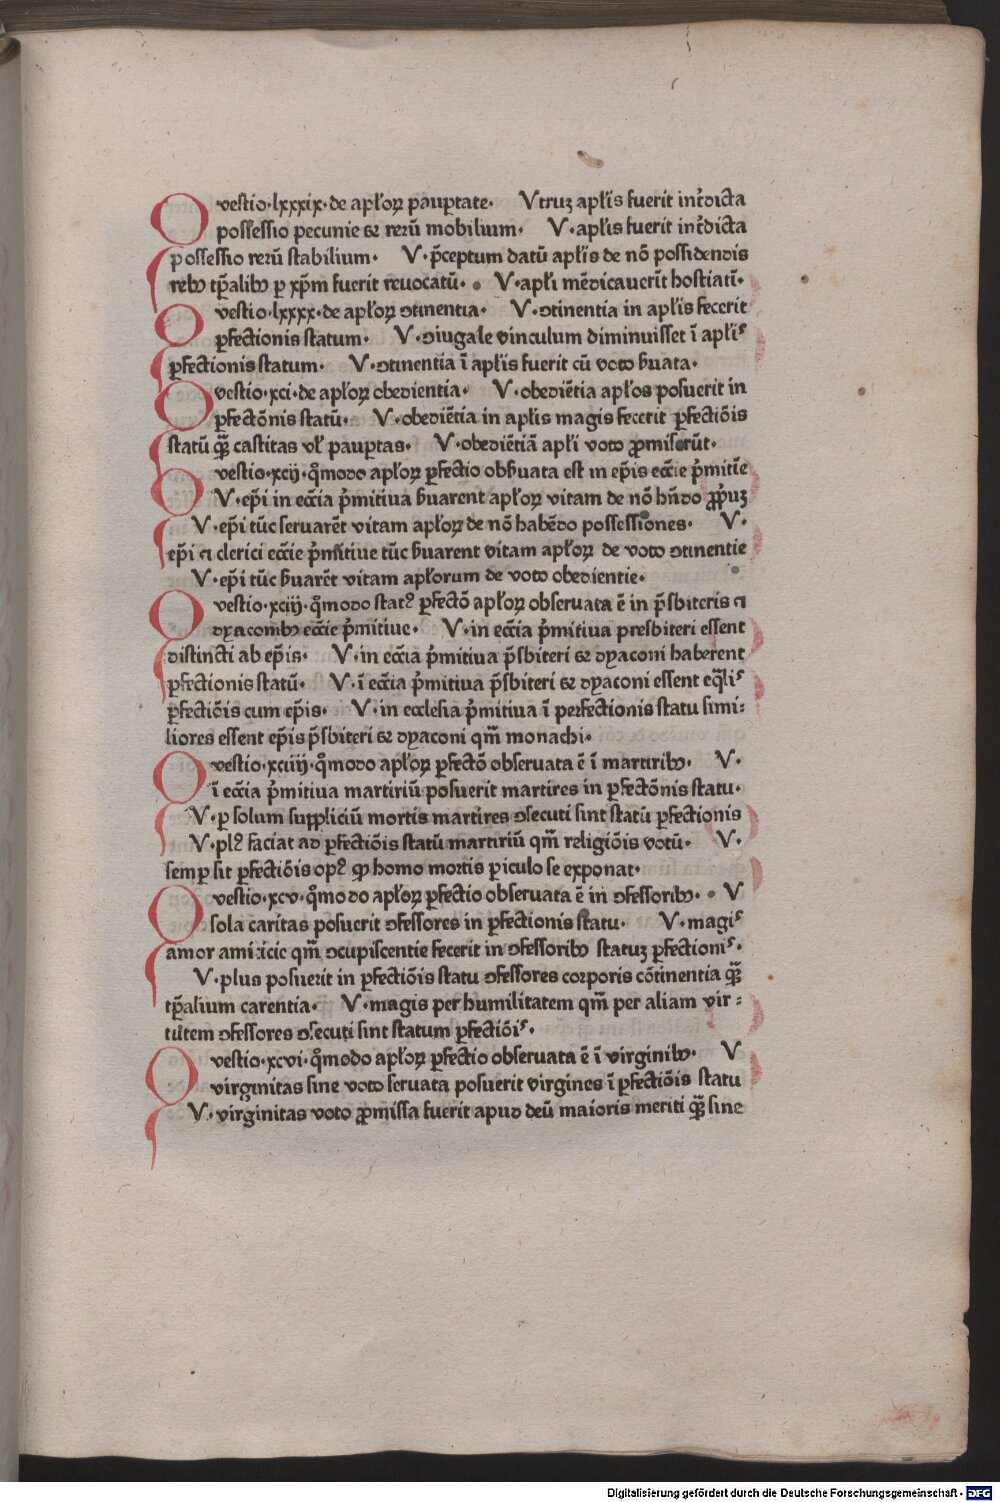 Questio·lxxxix·de apl'oꝝ paupertate· Vtruꝫ apl'is fuerit int'dicta
possessio pecunie ⁊ rerū mobilium· V·apl'is fuerit int'dicta
possessio rerū stabilium· V·p̄ceptum datū apl'is de nō possidendis
rebꝰ tp̄alibꝰ ꝑ xp̄m fuerit reuocatū· V·apl'i mēdicauerīt hostiatī·
Questio·lxxxx·de apl'oꝝ ꝯtinentia· V·ꝯtinentia in apl'is fecerit
ꝑfectionis statum· V·ꝯiugale vinculum diminuisset ī apl'is
ꝑfectionis statum· V·ꝯtinentia ī apl'is fuerit cū voto ẜuata·
Questio·xci·de apl'oꝝ obedientia· V·obediētia apl'os posuerit in
ꝑfectōnis statū· V·obediētia in apl'is magis fecerit ꝑfectiōis
statū qᷓꝫ castitas vl' pauꝑtas· V·obediētiā apl'i voto ꝓmiserūt·
Questio·xcij·qͦmodo apl'oꝝ ꝑfectio obẜuata est in ep̄is ecc̄ie pͥmitiē
V·ep̄i in ecc̄ia pͥmitiua ẜuarent apl'oꝝ vitam de nō hn̄do ꝓpͥuꝫ
V·ep̄i tūc seruarēt vitam apl'oꝝ de nō habēdo possessiones· V·
ep̄i ⁊ clerici ecc̄ie pͥmitiue tūc ẜuarent vitam apl'oꝝ de voto ꝯtinentie
V·ep̄i tūc ẜuarēt vitam apl'orum de voto obedientie·
Questio·xciij·qͦmodo statꝰ ꝑfectō apl'oꝝ obseruata ē in p̄sbiteris ⁊
dyaconibꝰ ecc̄ie pͥmitiue· V·in ecc̄ia pͥmitiua presbiteri essent
distincti ab ep̄is· V·in ecc̄ia pͥmitiua p̄sbiteri ⁊ dyaconi haberent
ꝑfectionis statū· V·ī ecc̄ia pͥmitiua p̄sbiteri ⁊ dyaconi essent eq̄lis
ꝑfectiōis cum ep̄is· V·in ecclesia pͥmitiua ī perfectionis statu simi⸗
liores essent ep̄is p̄sbiteri ⁊ dyaconi qm̄ monachi·
Questio·xciiij·qͦmodo apl'oꝝ ꝑfectō obseruata ē ī martiribꝰ· V·
ī ecc̄ia pͥmitiua martiriū posuerit martires in ꝑfectōnis statu·
V·ꝑ solum suppliciū mortis martires ꝯsecuti sint statū ꝑfectionis
V·plꝰ faciat ad ꝑfectiōis statū martiriū qm̄ religiōis votū· V·
semꝑ sit ꝑfectiōis opꝰ ꝙ homo mortis ꝑiculo se exponat·
Questio·xcv·qͦmodo apl'oꝝ ꝑfectio obseruata ē in ꝯfessoribꝰ· V
sola caritas posuerit ꝯfessores in ꝑfectionis statu· V·magis
amor amicicie qm̄ ꝯcupiscentie fecerit in ꝯfessoribꝰ statuꝫ ꝑfectionis·
V·plus posuerit in ꝑfectiōis statu ꝯfessores corporis cōtinentia qᷓꝫ
tp̄alium carentia· V·magis per humilitatem qm̄ per aliam vir⸗
tutem ꝯfessores ꝯsecuti sint statum ꝑfectiōis·
Questio·xcvi·qͦmodo apl'oꝝ ꝑfectio obseruata ē ī virginibꝰ· V
virginitas sine voto seruata posuerit virgines ī ꝑfectiōis statu
V·virginitas voto ꝓmissa fuerit apud deū maioris meriti qᷓꝫ sine
Digitalisierung gefördert durch die Deutsche Forschungsgemeinschaft - DFG